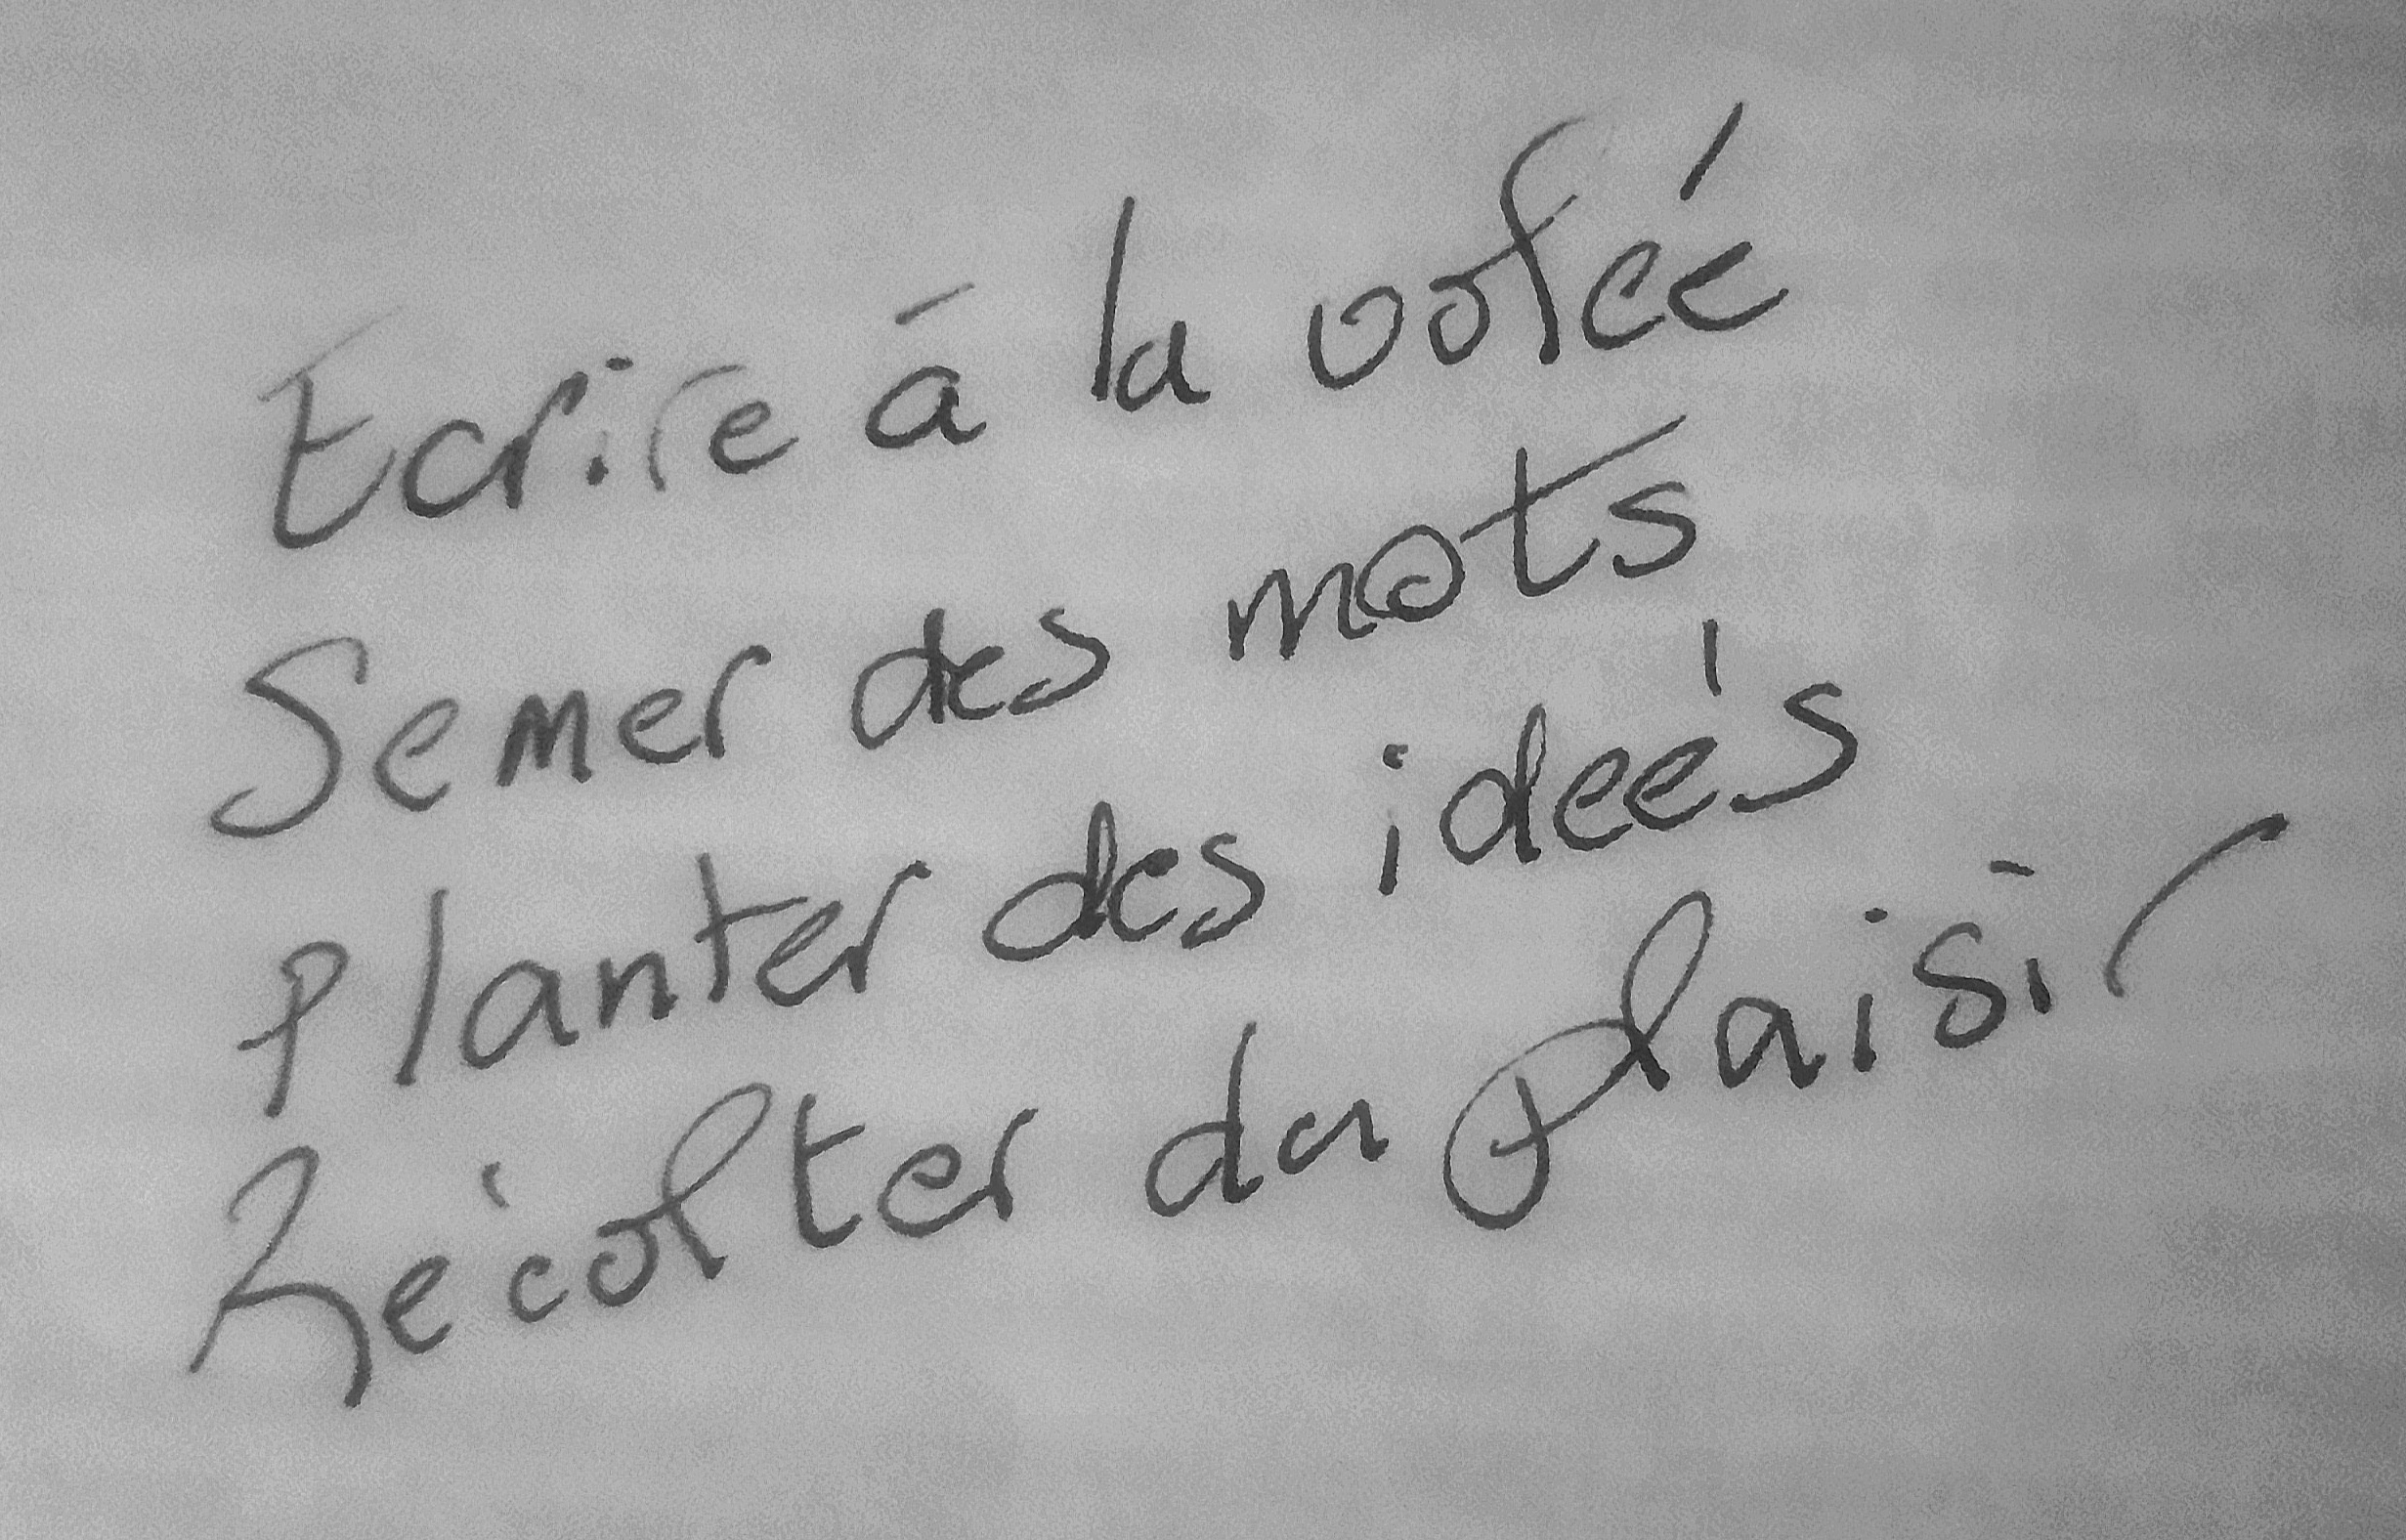 Ecrire à la volée
Semer des mots
Planter des idées
Récolter du plaisir